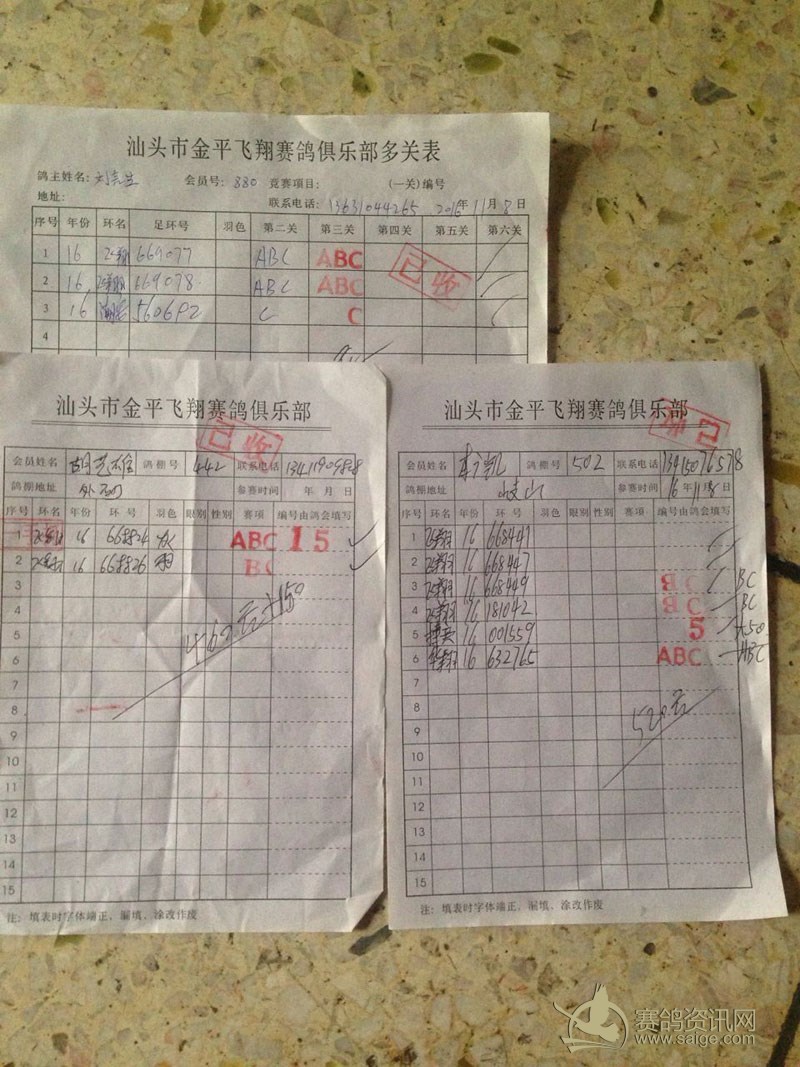 汕头市金平飞翔赛鸽俱乐部多关表
鸽主姓名: 会员号: 880 竞赛项目: (一关)编号
地址: 联系电话: 13631044265 2016年11月8日
序号 年份 环名 足环号 羽色 第二关 第三关 第四关 第五关 第六关
1 16 飞翔 669077 ABC ABC 已收
2 16 飞翔 669078 ABC ABC
3 16 560692 C C
4
汕头市金平飞翔赛鸽俱乐部
已收
会员姓名 鸽棚号 442 联系电话
鸽棚地址 参赛时间 年 月 日
序号 环名 年份 环号 羽色 眼别 性别 赛项 编号由鸽会填写
1 飞翔 16 668824 灰 ABC 15
2 飞翔 16 668826 BC
3
4
5
6
7
8
9
10
11
12
13
14
15
注: 填表时字体端正、漏填、涂改作废
汕头市金平飞翔赛鸽俱乐部
会员姓名 鸽棚号 502 联系电话 13415076578
鸽棚地址 参赛时间 16年11月8日
序号 环名 年份 环号 羽色 眼别 性别 赛项 编号由鸽会填写
1 飞翔 16 668441
2 飞翔 16 668447
3 飞翔 16 668449 BC BC
4 飞翔 16 181042 BC BC
5 16 001559 5 50
6 16 632765 ABC ABC
7
8
9 520元
10
11
12
13
14
15
注: 填表时字体端正、漏填、涂改作废
赛鸽资讯网
www.saige.com